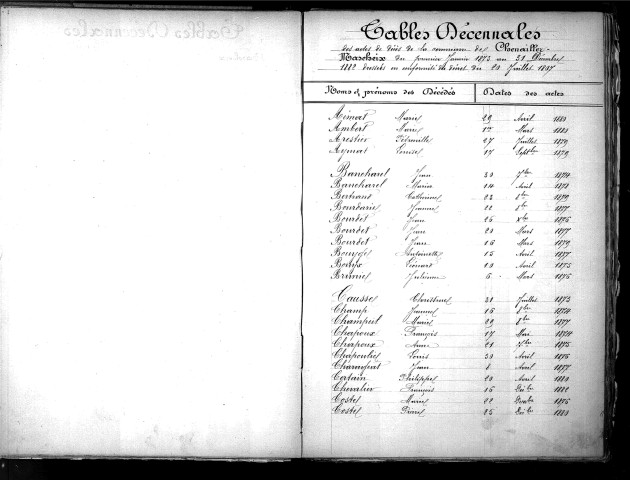 Tables Décennales
des actes de décès de la commune de Chenailler
Mascheix du premier Janvier 1873 au 31 Décembre
1882 dressées en conformité du décret du 20 Juillet 1807
Noms & prénoms des Décédés Dates des actes
Aimat Marie 29 Avril 1880
Ambert Marie 17 Mars 1881
Arestier Pétronille 27 Juillet 1879
Aymat Louise 17 Septbre 1879
Banchard Jean 30 7bre 1874
Bancharel Maria 14 Avril 1878
Bertrand Catherine 23 8bre 1879
Bourdarie Jeanne 22 8bre 1877
Bourdet Jean 26 Xbre 1875
Bourdet Jean 20 Mars 1877
Bourdet Jean 16 Mars 1879
Bouyge Antoinette 15 Avril 1877
Bouyx Léonard 10 Avril 1875
Brunie Julienne 6 Mars 1875
Causse Christine 31 Juillet 1873
Champ Jeanne 16 8bre 1874
Champeil Marie 20 8bre 1877
Chapoux François 17 Mai 1874
Chapoux Anne 21 7bre 1875
Chapoulie Louis 30 Avril 1876
Jean 8 Avril 1877
Certain Philippe 20 Avril 1880
Chevalier François 16 1882
Coste Marie 22 1875
Coste Pierre 25 1880